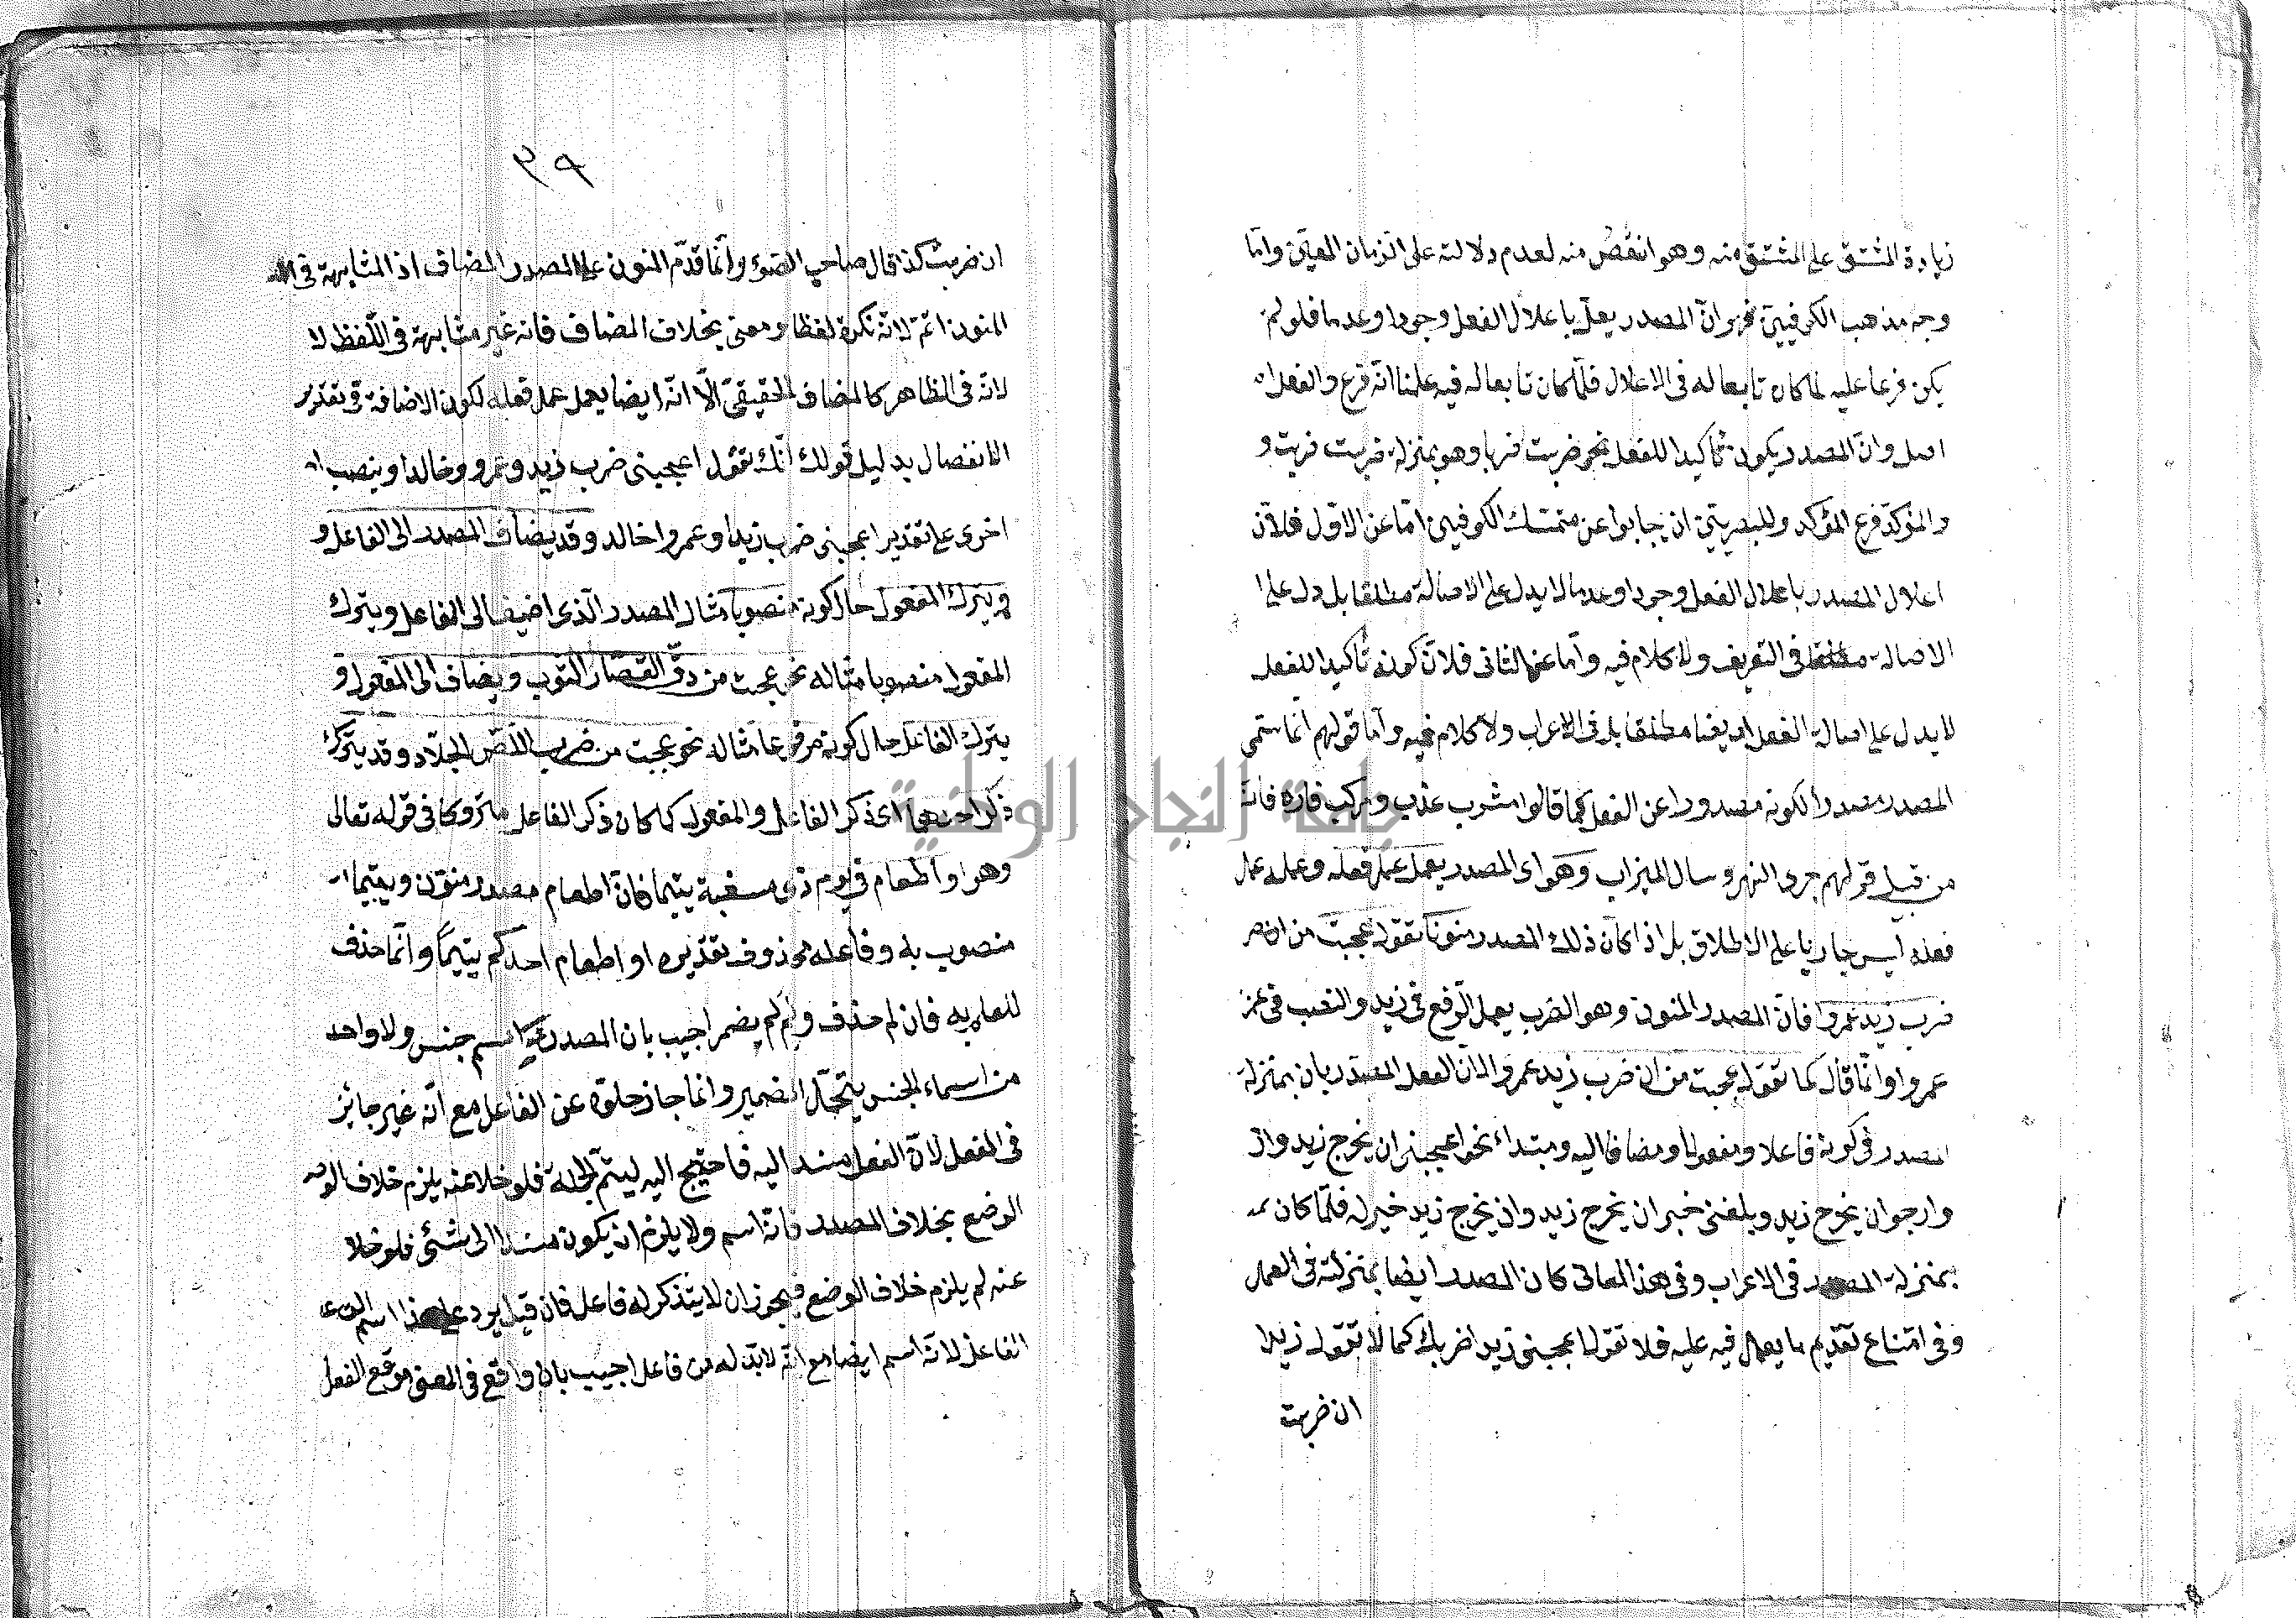 زيادة المشتق على المشتق منه وهو انقص منه لعدم دلالته على الزمان المعين وامّا
وجه مذهب الكوفيين فهو انّ المصدر يعلّ باعلال الفعل وجودا وعدما فلو لم
يكن فرعا عليه لما كان تابعا له فى الاعلال فلمّا كان تابعا له فيه علمنا انّه فرع والفعل
اصل وانّ المصدر يكون تأكيدا للفعل نحو ضربت ضربا وهو بمنزلة ضربت ضربت و
والمؤكّد فرع المؤكد وللبصريّين ان يجابوا عن متمسّك الكوفيين امّا عن الاول فلانّ
اعلال المصدر باعلال الفعل وجودا وعدما لا يدل على الاصالة مطلقا بل دل على
الاصالة فى التصريف ولا كلام فيه وامّا عن الثانى فلانّ كونه تأكيدا للفعل
لا يدل على اصالة الفعل ايضا مطلقا بل فى الاعراب ولا كلام فيه وامّا قولهم انّما سمّى
المصدر مصدرا لكونه مصدورا عن الفعل كما قالوا مشرب عذب ومركب فاره فانّه
من قبيل قولهم جرى النهر وسال الميزاب وهو اى المصدر يعمل عمل فعله وعمله عمل
فعله ليس جاريا على الاطلاق بل اذا كان ذلك المصدر منونا تقول عجبت من
ضرب زيد عمروا فانّ المصدر المنون وهو الضرب يعمل الرفع فى زيد والنصب فى
عمروا وانّما قال كما تقول عجبت من ان ضرب زيد عمروا لانّ الفعل المصدر بان بمنزلة
المصدر فى كونه فاعلا ومفعولا ومضافا اليه ومبتداء نحو اعجبنى ان يخرج زيد
وارجو ان يخرج زيد وبلغنى خبر ان يخرج زيد وان يخرج زيد خير له فلمّا كان
بمنزلة المصدر فى الاعراب وفى هذ المعانى كان المصدر ايضا بمنزلته فى العمل
وفى امتناع تقديم ما يعمل فيه عليه فلا تقول اعجبنى زيدا ضربك كما لا تقول زيدا
ان ضربت
٣٩
ان ضربت كذا قال صاحب الضوء وانّما قدّم المنون على المصدر المضاف اذ المشابهة فى
المنون اتمّ لانّه نكرة لفظا ومعنى بخلاف المضاف فانه غير مشابهة فى اللّفظ لا
لانّه فى الظاهر كالمضاف الحقيقىّ الّا انّه ايضا يعمل عمل فعله لكون الاضافة فى تقدير
الانفصال بدليل قولك انّك تقول اعجبنى ضرب زيد وعمرو وخالدا وينصب
اخرى على تقدير اعجبنى ضرب زيدا وعمروا خالد وقد يضاف المصدر الى الفاعل و
ويترك المفعول حال كونه منصوبا مثال المصدر الّذى اضيف الى الفاعل ويترك
المفعول منصوبا مثاله نحو عجبت من دقّ القصّار الثوب ويضاف الى المفعول و
يترك الفاعل حال كونه مرفوعا مثاله نحو عجبت من ضرب اللّصّ الجلّاد وقد يترك
ذكر احدهما اى ذكر الفاعل والمفعول كما كان ذكر الفاعل متروكا فى قوله تعالى
وهو او اطعام فى يوم ذى مسغبة يتيما فانّ اطعام مصدر منوّن ويتيما
منصوب به وفاعله محذوف تقديره او اطعام احدكم يتيمًا وانّما حذف
للعلم به فان لم حذف ولم لم يضمر اجيب بان المصدر اسم جنس ولا واحد
من اسماء الجنس يتحمّل الضمير وانما جاز خلوّه عن الفاعل مع انّه غير جائز
فى الفعل لانّ الفعل مسند اليه فاحتيج اليه ليتمّ الجملة فلو خلا عنه يلزم خلاف
الوضع بخلاف المصدر فانّه اسم ولا يلزم ان يكون مسندا الى شئى فلو خلا
عنه لم يلزم خلاف الوضع فيجوز ان لا يتذكر له فاعل فان قيل يرد على هذا اسم
الفاعل لانّه اسم ايضا مع انّه لا بدّ له من فاعل اجيب بان واقع فى المعنى موقع الفعل